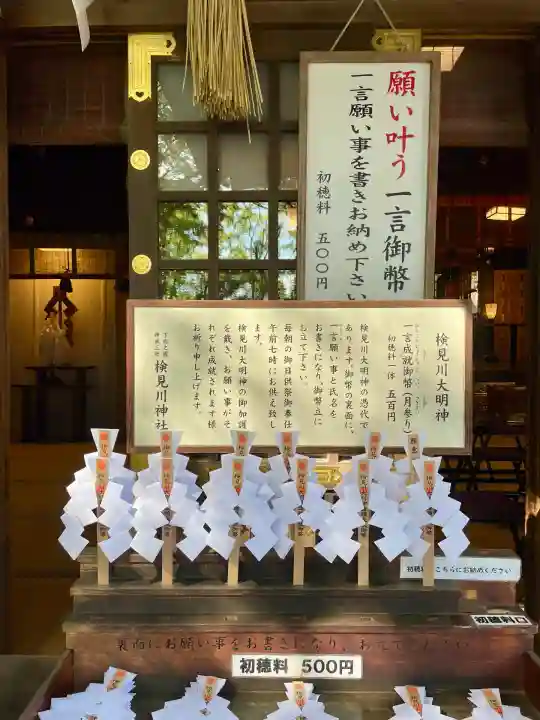 願い叶う 一言御幣
一言願い事を書きお納め下さい
初穂料 五〇〇円
検見川大明神
一言成就御幣(月参り)
初穂料一体 五百円
検見川大明神の憑代で
あります。御幣の裏面に、
一言願い事と氏名を
お書きになり、御幣立に
お立て下さい。
毎朝の御日供祭御奉仕
午前七時にお供え致し
ます。
検見川大明神の御加護
を戴き、お願い事がそ
れぞれ成就されます様
お祈り申し上げます。
検見川神社
初穂料 こちらにお納めください
初穂料口
裏面にお願い事をお書きになり、
初穂料 500円